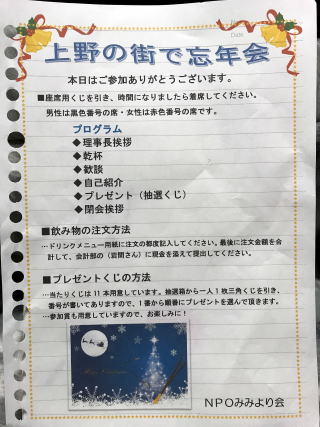 Date
上野の街で忘年会
本日はご参加ありがとうございます。
■座席用くじを引き、時間になりましたら着席してください。
男性は黒色番号の席・女性は赤色番号の席です。
プログラム
◆理事長挨拶
◆乾杯
◆歓談
◆自己紹介
◆プレゼント（抽選くじ）
◆閉会挨拶
■飲み物の注文方法
…ドリンクメニュー用紙に注文の都度記入してください。最後に注文金額を合
計して、会計部の（岩間さん）に現金を添えて提出してください。
■プレゼントくじの方法
…当たりくじは11本用意しています。抽選箱から一人1枚三角くじを引き、
番号が書いてありますので、1番から順番にプレゼントを選んで頂きます。
…参加賞も用意していますので、お楽しみに！
NPOみみより会